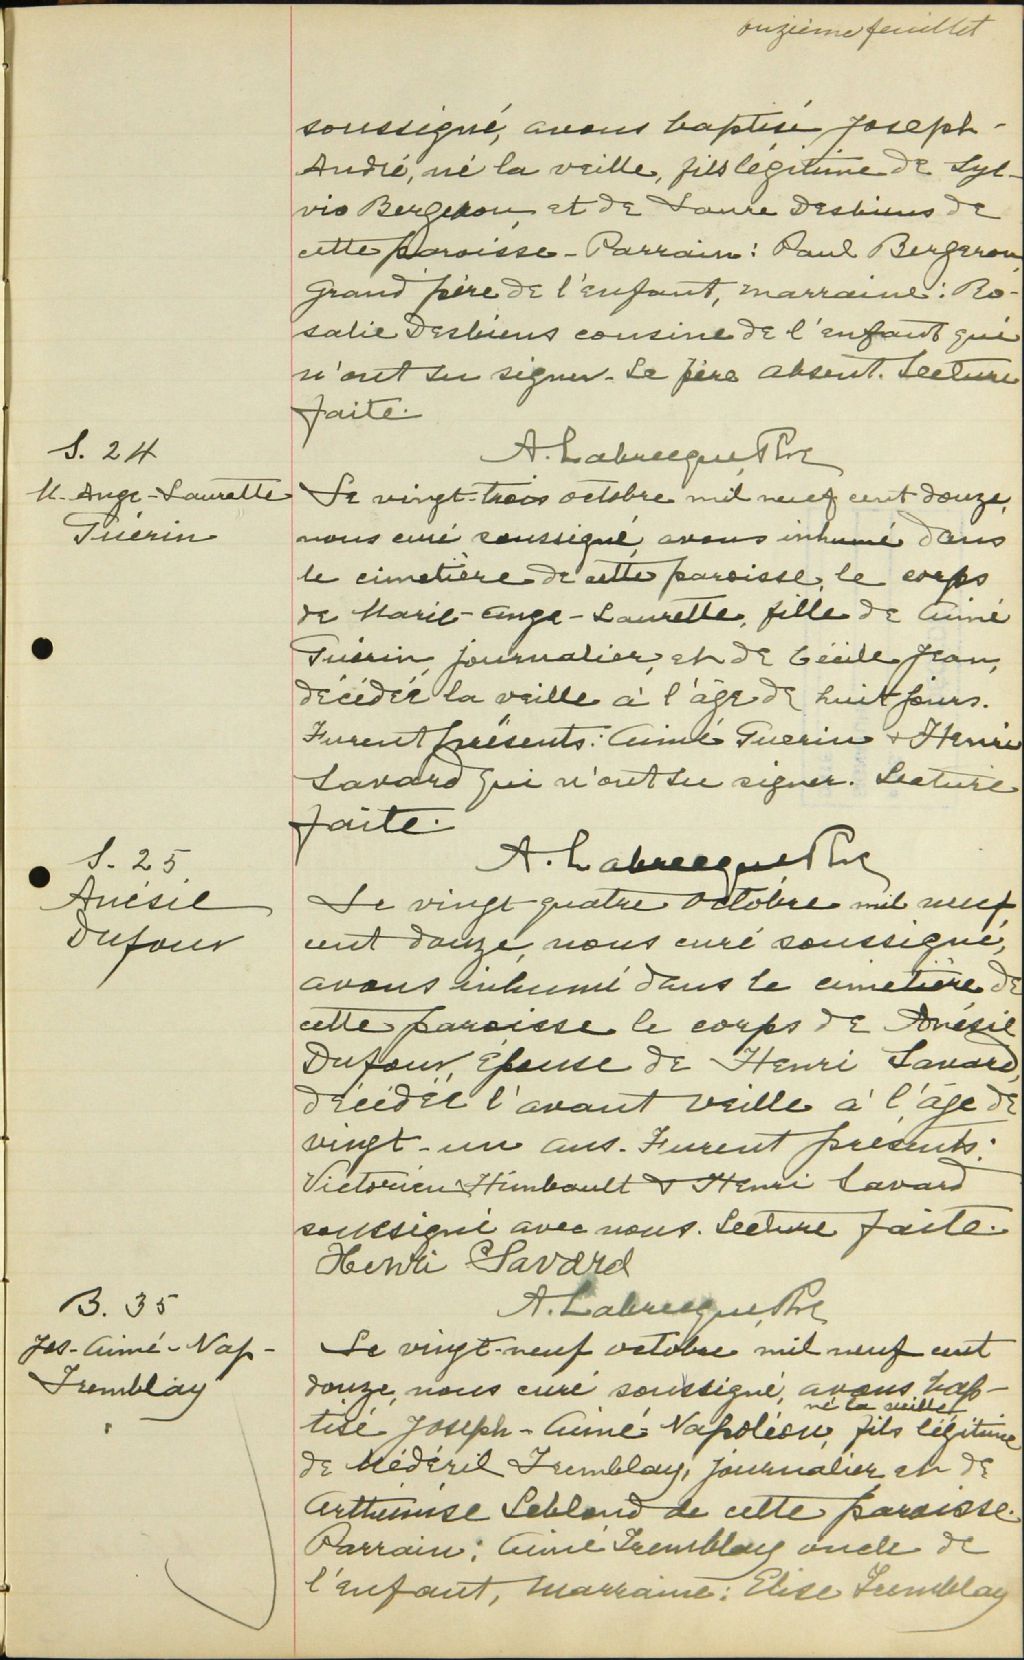 onzième feuillet
soussigné, avons baptisé Joseph-
André, né la veille, fils légitime de Syl-
vio Bergeron et de Laure Desbiens de
cette paroisse - Parrain: Paul Bergeron,
grand père de l'enfant, marraine: Ro-
salie Desbiens cousine de l'enfant qui
n'ont su signer. Le père absent. Lecture
faite.
A. Labrecque Ptre
S. 24
M-Ange-Laurette
Guérin
Le vingt-trois octobre mil neuf cent douze,
nous curé soussigné, avons inhumé dans
le cimetière de cette paroisse, le corps
de Marie-Ange-Laurette, fille de Aimé
Guérin, journalier, et de Cécile Jean,
décédée la veille à l'âge de huit jours.
Furent présents: Aimé Guérin & Henri
Savard qui n'ont su signer. Lecture
faite.
A. Labrecque Ptre
S. 25
Anésie
Dufour
Le vingt-quatre octobre mil neuf
cent douze, nous curé soussigné,
avons inhumé dans le cimetière de
cette paroisse le corps de Anésie
Dufour, épouse de Henri Savard,
décédée l'avant veille à l'âge de
vingt-un ans. Furent présents:
Victorien Himbault & Henri Savard
soussigné avec nous. Lecture faite.
Henri Savard
A. Labrecque, Ptre
B. 35
Jos-Aimé-Nap-
Tremblay
Le vingt-neuf octobre mil neuf cent
douze, nous curé soussigné, avons bap-
né la veille
tisé Joseph-Aimé-Napoléon, fils légitime
de Médéril Tremblay, journalier et de
Arthémise Leblond de cette paroisse.
Parrain: Aimé Tremblay oncle de
l'enfant, Marraine: Elise Tremblay